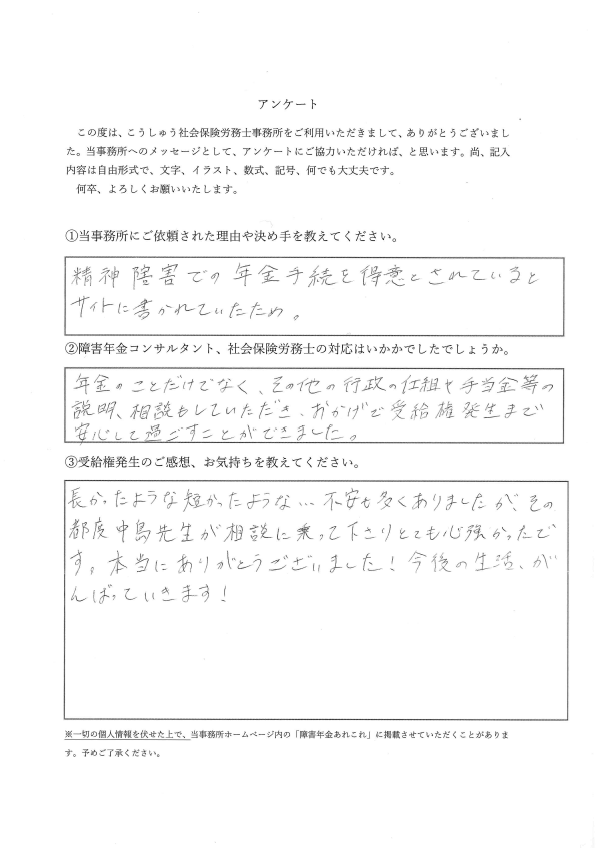 アンケート
この度は、こうしゅう社会保険労務士事務所をご利用いただきまして、ありがとうございまし
た。当事務所へのメッセージとして、アンケートにご協力いただければ、と思います。尚、記入
内容は自由形式で、文字、イラスト、数式、記号、何でも大丈夫です。
何卒、よろしくお願いいたします。
①当事務所にご依頼された理由や決め手を教えてください。
精神障害での年金手続を得意とされていると
サイトに書かれていたため。
②障害年金コンサルタント、社会保険労務士の対応はいかかでしたでしょうか。
年金のことだけでなく、その他の行政の仕組や手当金等の
説明、相談もしていただき、おかげで受給権発生まで
安心して過ごすことができました。
③受給権発生のご感想、お気持ちを教えてください。
長かったような短かったような…不安も多くありましたが、その
都度中島先生が相談に乗って下さりとても心強かったで
す。本当にありがとうございました！今後の生活、が
んばっていきます！
※一切の個人情報を伏せた上で、当事務所ホームページ内の「障害年金あれこれ」に掲載させていただくことがありま
す。予めご了承ください。